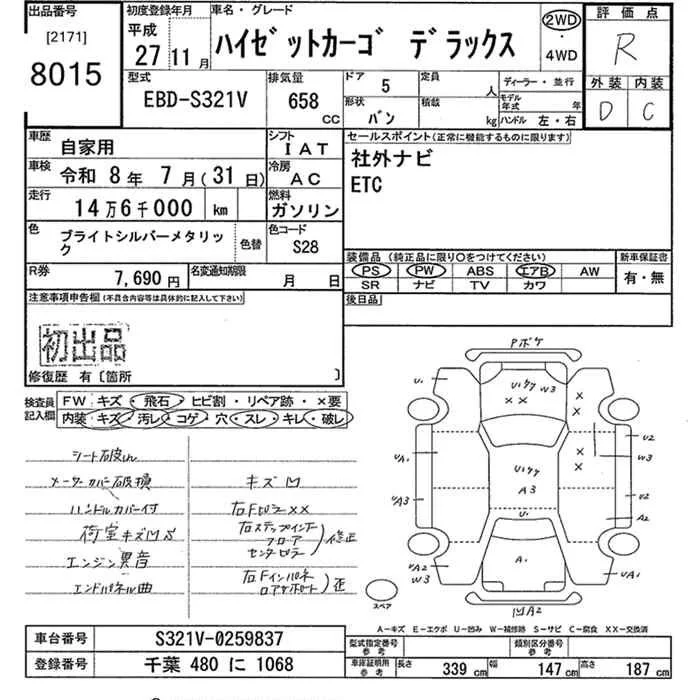 出品番号
[2171]
8015
初度登録年月
平成
27 11月
車名・グレード
ハイゼットカーゴ デラックス
2WD
・
4WD
評価点
R
型式
EBD-S321V
排気量
658
CC
ドア 5
定員 人
ディーラー・並行
形状 バン
積載 kg
モデル年式 年
ハンドル 左・右
外装 内装
D C
車歴 自家用
シフト IAT
車検 令和 8年 7月(31日)
冷房 AC
走行 14万6千000 km
燃料 ガソリン
色 ブライトシルバーメタリック
色替
色コード S28
R券 7,690円
名変通知期限 月 日
セールスポイント(正常に機能するものに限ります)
社外ナビ
ETC
装備品(純正品に限り○をつけてください)
PS PW ABS エアB AW
SR ナビ TV カワ
新車保証書
有・無
後日品
注意事項申告欄(不具合内容等は具体的に記入して下さい)
初出品
修復歴 有〔箇所 〕
検査員記入欄
FW キズ・飛石・ヒビ割・リペア跡・×要
内装・キズ・汚レ・コゲ・穴・スレ・キレ・破レ
シート破れ
メーターカバー破損
ハンドルカバー付
荷室キズ凹S
エンジン異音
エンドパネル曲
キズ凹
右Fピラー××
右ステップインナー
フロアー
センターピラー
修正
右Fインパネ
ロアサポート
歪
Pボケ
U1
Uイケケ W3
××
×
×
×
×
U2
W3
UA1
UA3
Uイケケ
A3
U1
U2
A2
A1
UA2
W3
UA1
凹A2
スペア
A―キズ E―エクボ U―凹み W―補修跡 S―サビ C―腐食 XX―交換済
車台番号 S321V-0259837
登録番号 千葉 480 に 1068
型式指定番号
参考
類別区分番号
参考
車庫証明用
参考
長さ 339 cm
幅 147 cm
高さ 187 cm